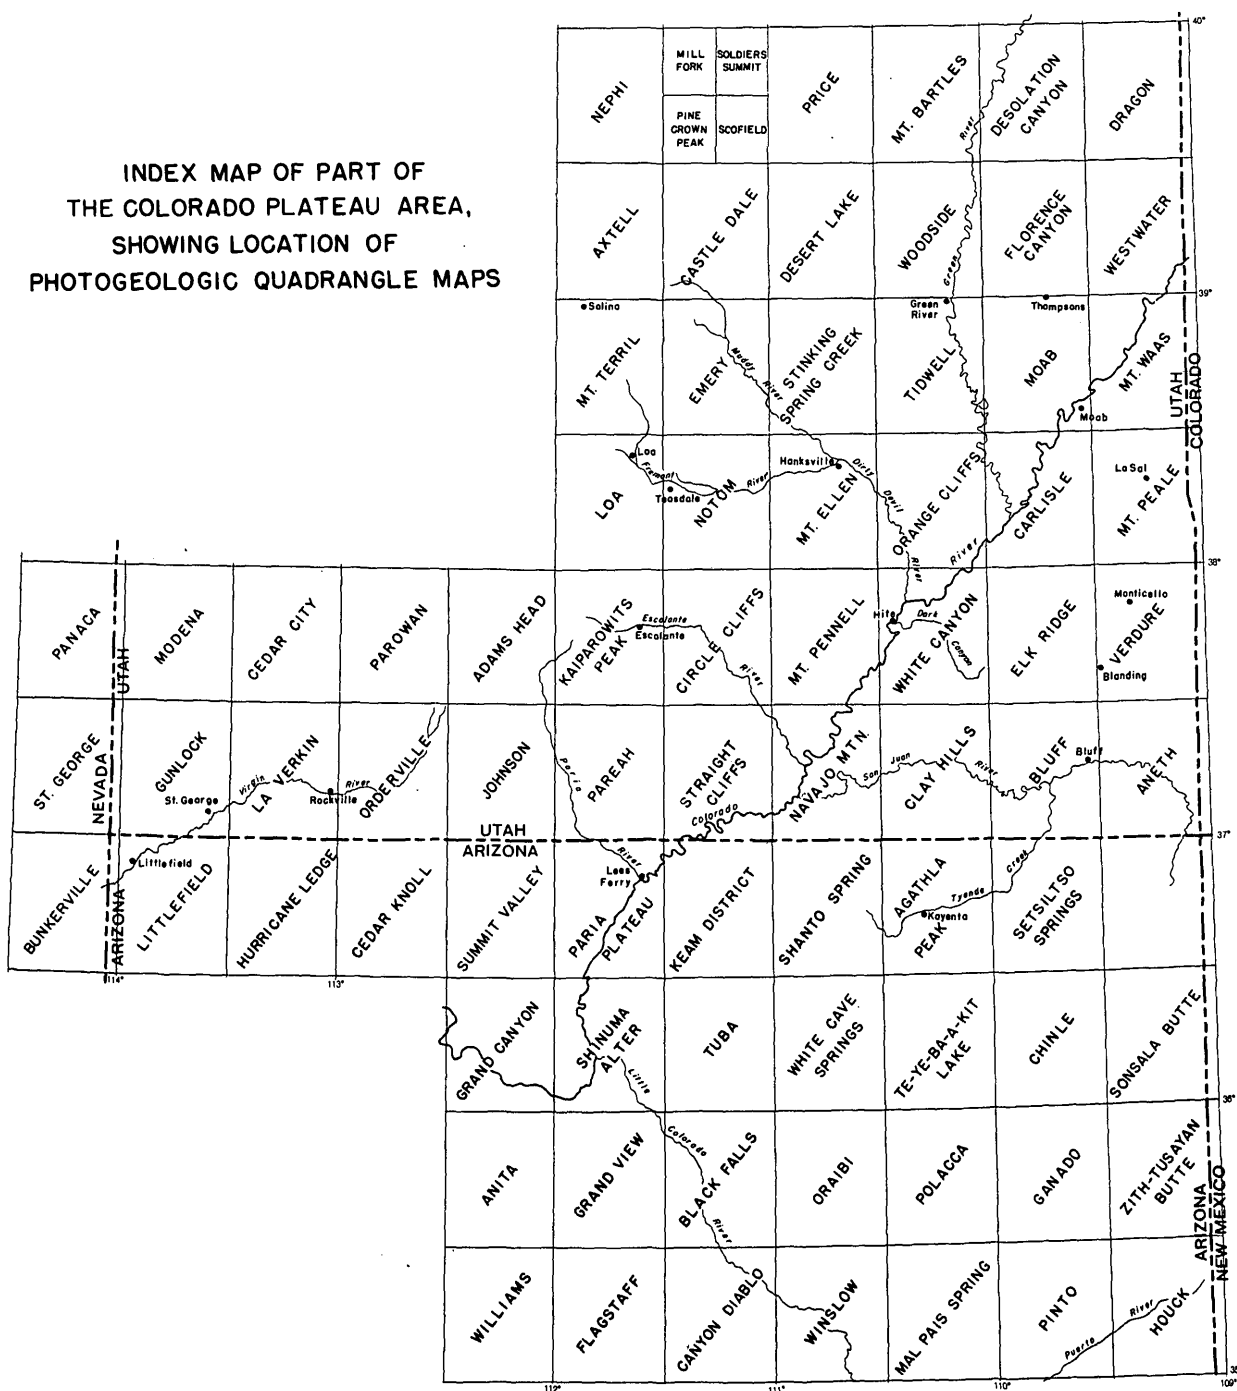 INDEX MAP OF PART OF
THE COLORADO PLATEAU AREA,
SHOWING LOCATION OF
PHOTOGEOLOGIC QUADRANGLE MAPS
40°
NEPHI
MILL
FORK
SOLDIERS
SUMMIT
PINE
CROWN
PEAK
SCOFIELD
PRICE
MT. BARTLES
River
DESOLATION
CANYON
DRAGON
AXTELL
CASTLE DALE
DESERT LAKE
WOODSIDE
Green
FLORENCE
CANYON
WESTWATER
39°
Salina
Green
River
Thompsons
MT. TERRIL
EMERY
Muddy
River
STINKING
SPRING CREEK
TIDWELL
MOAB
Moab
MT. WAAS
UTAH
COLORADO
LOA
Loa
Fremont
Teasdale
NOTOM
River
Hanksville
MT. ELLEN
Dirty
Devil
River
ORANGE CLIFFS
River
CARLISLE
La Sal
MT. PEALE
38°
PANACA
UTAH
MODENA
CEDAR CITY
PAROWAN
ADAMS HEAD
KAIPAROWITS
PEAK
Escalante
Escalante
CIRCLE CLIFFS
River
MT. PENNELL
Hite
Dark
Canyon
WHITE CANYON
ELK RIDGE
Monticello
VERDURE
Blanding
ST. GEORGE
NEVADA
GUNLOCK
St. George
Virgin
LA VERKIN
Rockville
River
ORDERVILLE
JOHNSON
Paria
PAREAH
STRAIGHT
CLIFFS
Colorado
NAVAJO MTN.
San Juan
River
CLAY HILLS
BLUFF
Bluff
ANETH
37°
UTAH
ARIZONA
BUNKERVILLE
ARIZONA
Littlefield
LITTLEFIELD
HURRICANE LEDGE
CEDAR KNOLL
SUMMIT VALLEY
River
Lees
Ferry
PARIA
PLATEAU
KEAM DISTRICT
SHANTO SPRING
AGATHLA
PEAK
Kayenta
Tyende
Creek
SETSILTSO
SPRINGS
114°
113°
GRAND CANYON
SHINUMA
ALTER
Little
TUBA
WHITE CAVE
SPRINGS
TE-YE-BA-A-KIT
LAKE
CHINLE
SONSALA BUTTE
36°
ANITA
GRAND VIEW
Colorado
BLACK FALLS
River
ORAIBI
POLACCA
GANADO
ZITH-TUSAYAN
BUTTE
ARIZONA
NEW MEXICO
WILLIAMS
FLAGSTAFF
CANYON DIABLO
WINSLOW
MAL PAIS SPRING
PINTO
Puerto
River
HOUCK
35°
112°
111°
110°
109°